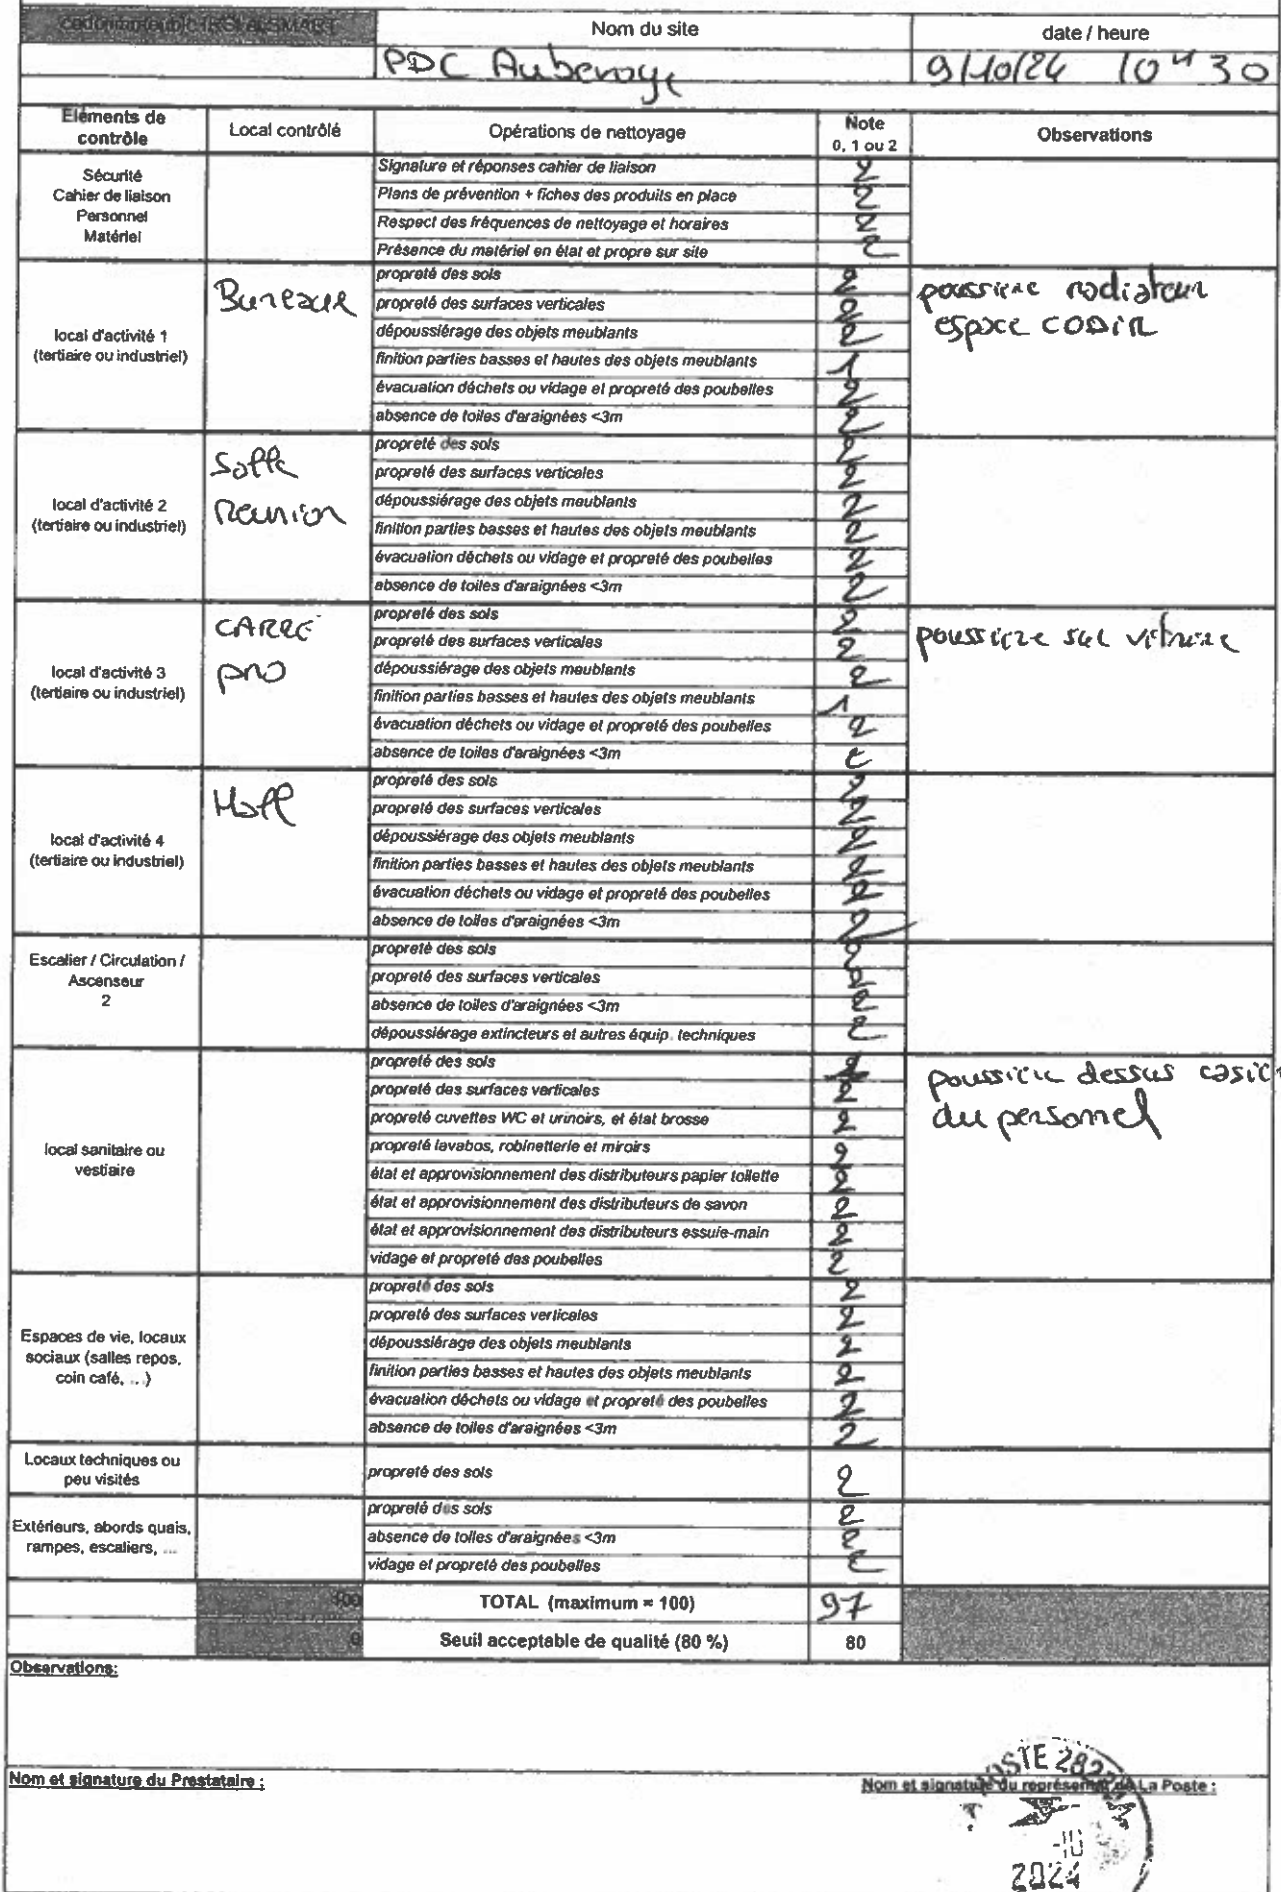 Nom du site
date / heure
PDC Aubevoye
9/10/24 10H30
Eléments de contrôle
Local contrôlé
Opérations de nettoyage
Note
0, 1 ou 2
Observations
Sécurité
Cahier de liaison
Personnel
Matériel
Signature et réponses cahier de liaison 2
Plans de prévention + fiches des produits en place 2
Respect des fréquences de nettoyage et horaires 2
Présence du matériel en état et propre sur site 2
local d'activité 1
(tertiaire ou industriel)
Bureaux
propreté des sols 2
propreté des surfaces verticales 2
dépoussiérage des objets meublants 2
finition parties basses et hautes des objets meublants 1
évacuation déchets ou vidage et propreté des poubelles 2
absence de toiles d'araignées <3m 2
poussière radiateur
espace CODIR
local d'activité 2
(tertiaire ou industriel)
Salle
Reunion
propreté des sols 2
propreté des surfaces verticales 2
dépoussiérage des objets meublants 2
finition parties basses et hautes des objets meublants 2
évacuation déchets ou vidage et propreté des poubelles 2
absence de toiles d'araignées <3m 2
local d'activité 3
(tertiaire ou industriel)
CARRE
pro
propreté des sols 2
propreté des surfaces verticales 2
dépoussiérage des objets meublants 2
finition parties basses et hautes des objets meublants 1
évacuation déchets ou vidage et propreté des poubelles 2
absence de toiles d'araignées <3m 2
poussière sur vitrine
local d'activité 4
(tertiaire ou industriel)
Hall
propreté des sols 2
propreté des surfaces verticales 2
dépoussiérage des objets meublants 2
finition parties basses et hautes des objets meublants 2
évacuation déchets ou vidage et propreté des poubelles 2
absence de toiles d'araignées <3m 2
Escalier / Circulation /
Ascenseur
2
propreté des sols 2
propreté des surfaces verticales 2
absence de toiles d'araignées <3m 2
dépoussiérage extincteurs et autres équip. techniques 2
local sanitaire ou
vestiaire
propreté des sols
propreté des surfaces verticales 2
propreté cuvettes WC et urinoirs, et état brosse 2
propreté lavabos, robinetterie et miroirs 2
état et approvisionnement des distributeurs papier toilette 2
état et approvisionnement des distributeurs de savon 2
état et approvisionnement des distributeurs essuie-main 2
vidage et propreté des poubelles 2
poussière dessus casie
du personnel
Espaces de vie, locaux
sociaux (salles repos,
coin café, ...)
propreté des sols 2
propreté des surfaces verticales 2
dépoussiérage des objets meublants 2
finition parties basses et hautes des objets meublants 2
évacuation déchets ou vidage et propreté des poubelles 2
absence de toiles d'araignées <3m 2
Locaux techniques ou
peu visités
propreté des sols 2
Extérieurs, abords quais,
rampes, escaliers, ...
propreté des sols 2
absence de toiles d'araignées <3m 2
vidage et propreté des poubelles 2
100
TOTAL (maximum = 100) 97
0
Seuil acceptable de qualité (80 %) 80
Observations:
Nom et signature du Prestataire :
Nom et signature du représentant de La Poste :
-10
2024